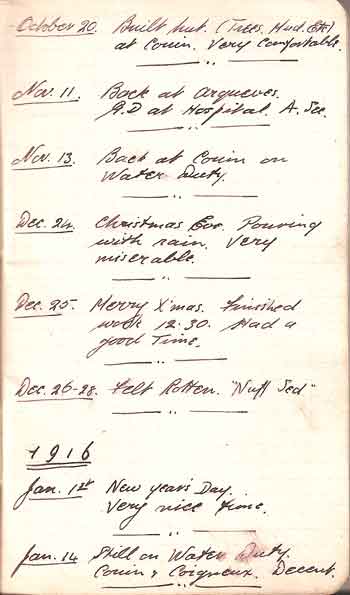 October 20. Built hut. (Trees, Mud. Etc)
at Couin. Very Comfortable.
Nov. 11. Back at Arqueves.
G.D at Hospital. A. Sec.
Nov. 13. Back at Couin on
Water Duty.
Dec. 24. Christmas Eve. Pouring
with rain. Very
miserable.
Dec. 25. Merry X'mas. Finished
work 12.30. Had a
good Time.
Dec. 26-28. Felt Rotten. "Nuff Sed"
1916
Jan. 1st New year's Day.
Very nice time.
Jan. 14 Still on Water Duty.
Couin & Coigneux. Decent.